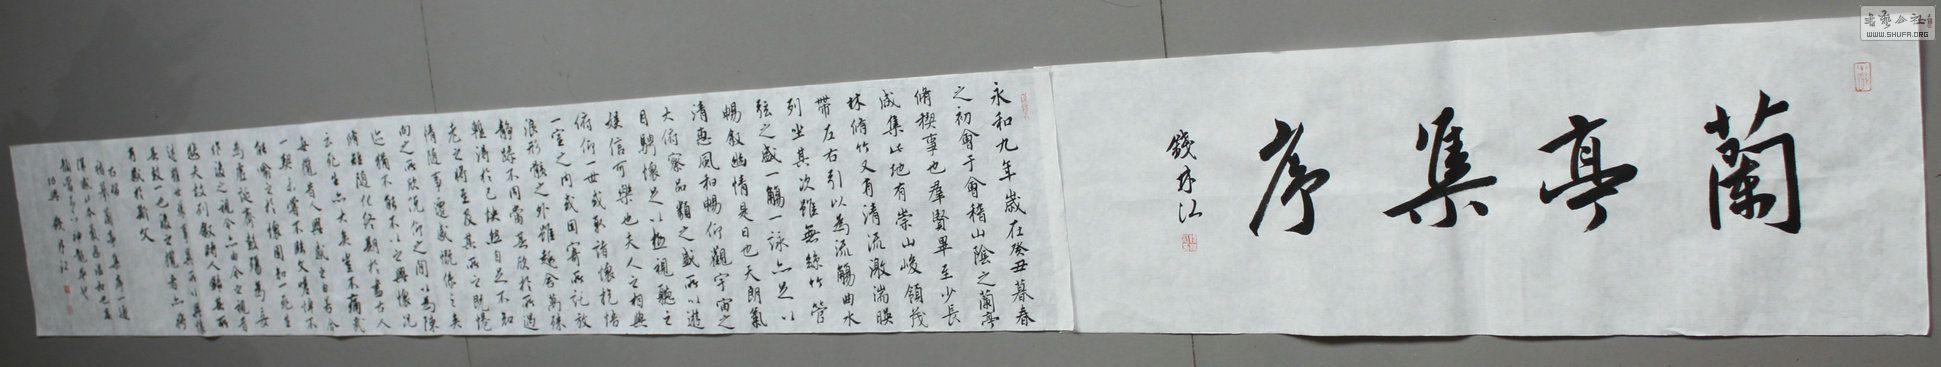 蘭亭集序
永和九年歲在癸丑暮春
之初會于會稽山陰之蘭亭
脩稧事也羣賢畢至少長
咸集此地有崇山峻領茂
林脩竹又有清流激湍暎
帶左右引以為流觴曲水
列坐其次雖無絲竹管
弦之盛一觴一詠亦足以
暢敘幽情是日也天朗氣
清惠風和暢仰觀宇宙之
大俯察品類之盛所以遊
目騁懷足以極視聽之
娛信可樂也夫人之相與
俯仰一世或取諸懷抱悟
一室之內或因寄所託放
浪形骸之外雖趣舍萬殊
靜躁不同當其欣於所遇
輒得於己快然自足不知
老之將至及其所之既惓
情隨事遷感慨係之矣
向之所欣俛仰之間以為陳
迹猶不能不以之興懷況
脩短隨化終期於盡古人
云死生亦大矣豈不痛哉
每攬昔人興感之由若合
一契未嘗不臨文嗟悼不
能喻之於懷固知一死生
為虛誕齊彭殤為妄
作後之視今亦由今之視昔
悲夫故列敘時人錄其所
述雖世殊事異所以興懷
其致一也後之攬者亦將
有感於斯文
書藝公社
WWW.SHUFA.ORG